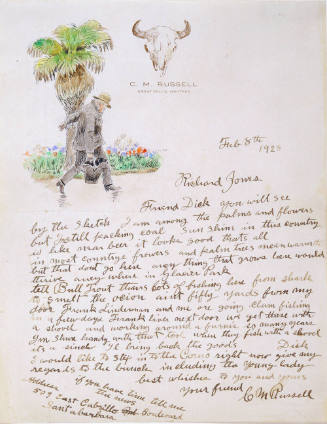 C. M. RUSSELL
GREAT FALLS, MONTANA
Feb 8th
1923
Richard Jones
Friend Dick you will see
by the sketch I am among the palms and flowers
but still packing coal Sun shine in this country
is like near beer it looks good thats all
in most countrys flowers and palm trees mean warmth
but that dont go here any thing that grows here would
thrive any where in Glacier Park
tell Bull Trout thars lots of fishing here from shark
to smelt the ocion aint fifty yards from my
door Frank Linderman and me are going clam fishing
in a few days Frank lives next door we get those with
a shovel and working around a furnis so many years
Im shure handy with that tool when they fish with a shovel
its a sinch Ill bring back the goods Dick
I would like to step in to the Como right now give my
regards to the bunch including the Young lady
best whishes to you and yours
your friend
C M Russell
if you have time tell me
the news
adress
529 East Cabrillo Boulevard
Santa barbara